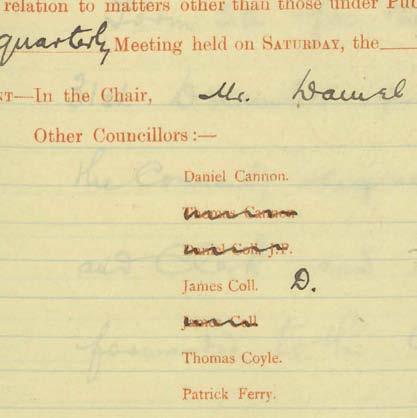 relation to matters other than those under Pu
quarterly Meeting held on SATURDAY, the
NT—In the Chair, Mr. Daniel
Other Councillors:—
Daniel Cannon.
Thomas Cannon
Daniel Coll, J.P.
James Coll. D.
James Coll
Thomas Coyle.
Patrick Ferry.